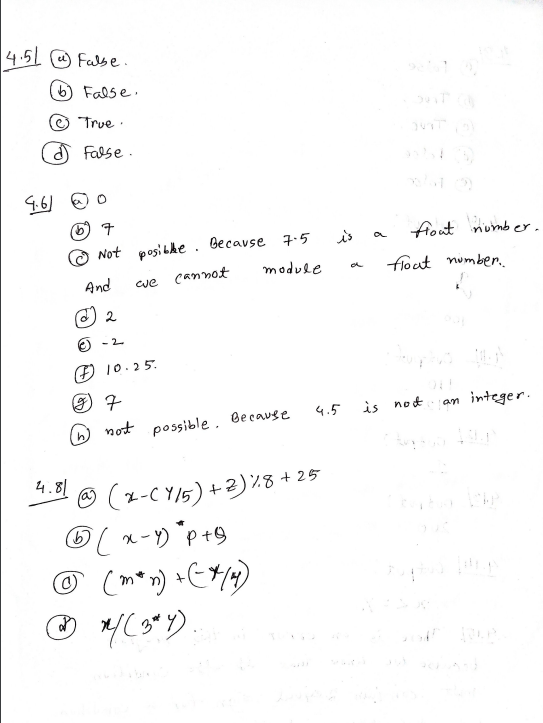 4.5| (a) False.
(b) False.
(c) True.
(d) False.
4.6| (a) 0
(b) 7
(c) Not posibke. Because 7.5 is a float number.
And we cannot module a float number.
(d) 2
(e) -2
(f) 10.25.
(g) 7
(h) not possible. Because 4.5 is not an integer.
4.8| (a) (x-(Y/5)+Z)%8+25
(b) (x-y)*p+Q
(c) (m*n)+(-x/y)
(d) x/(3*y)